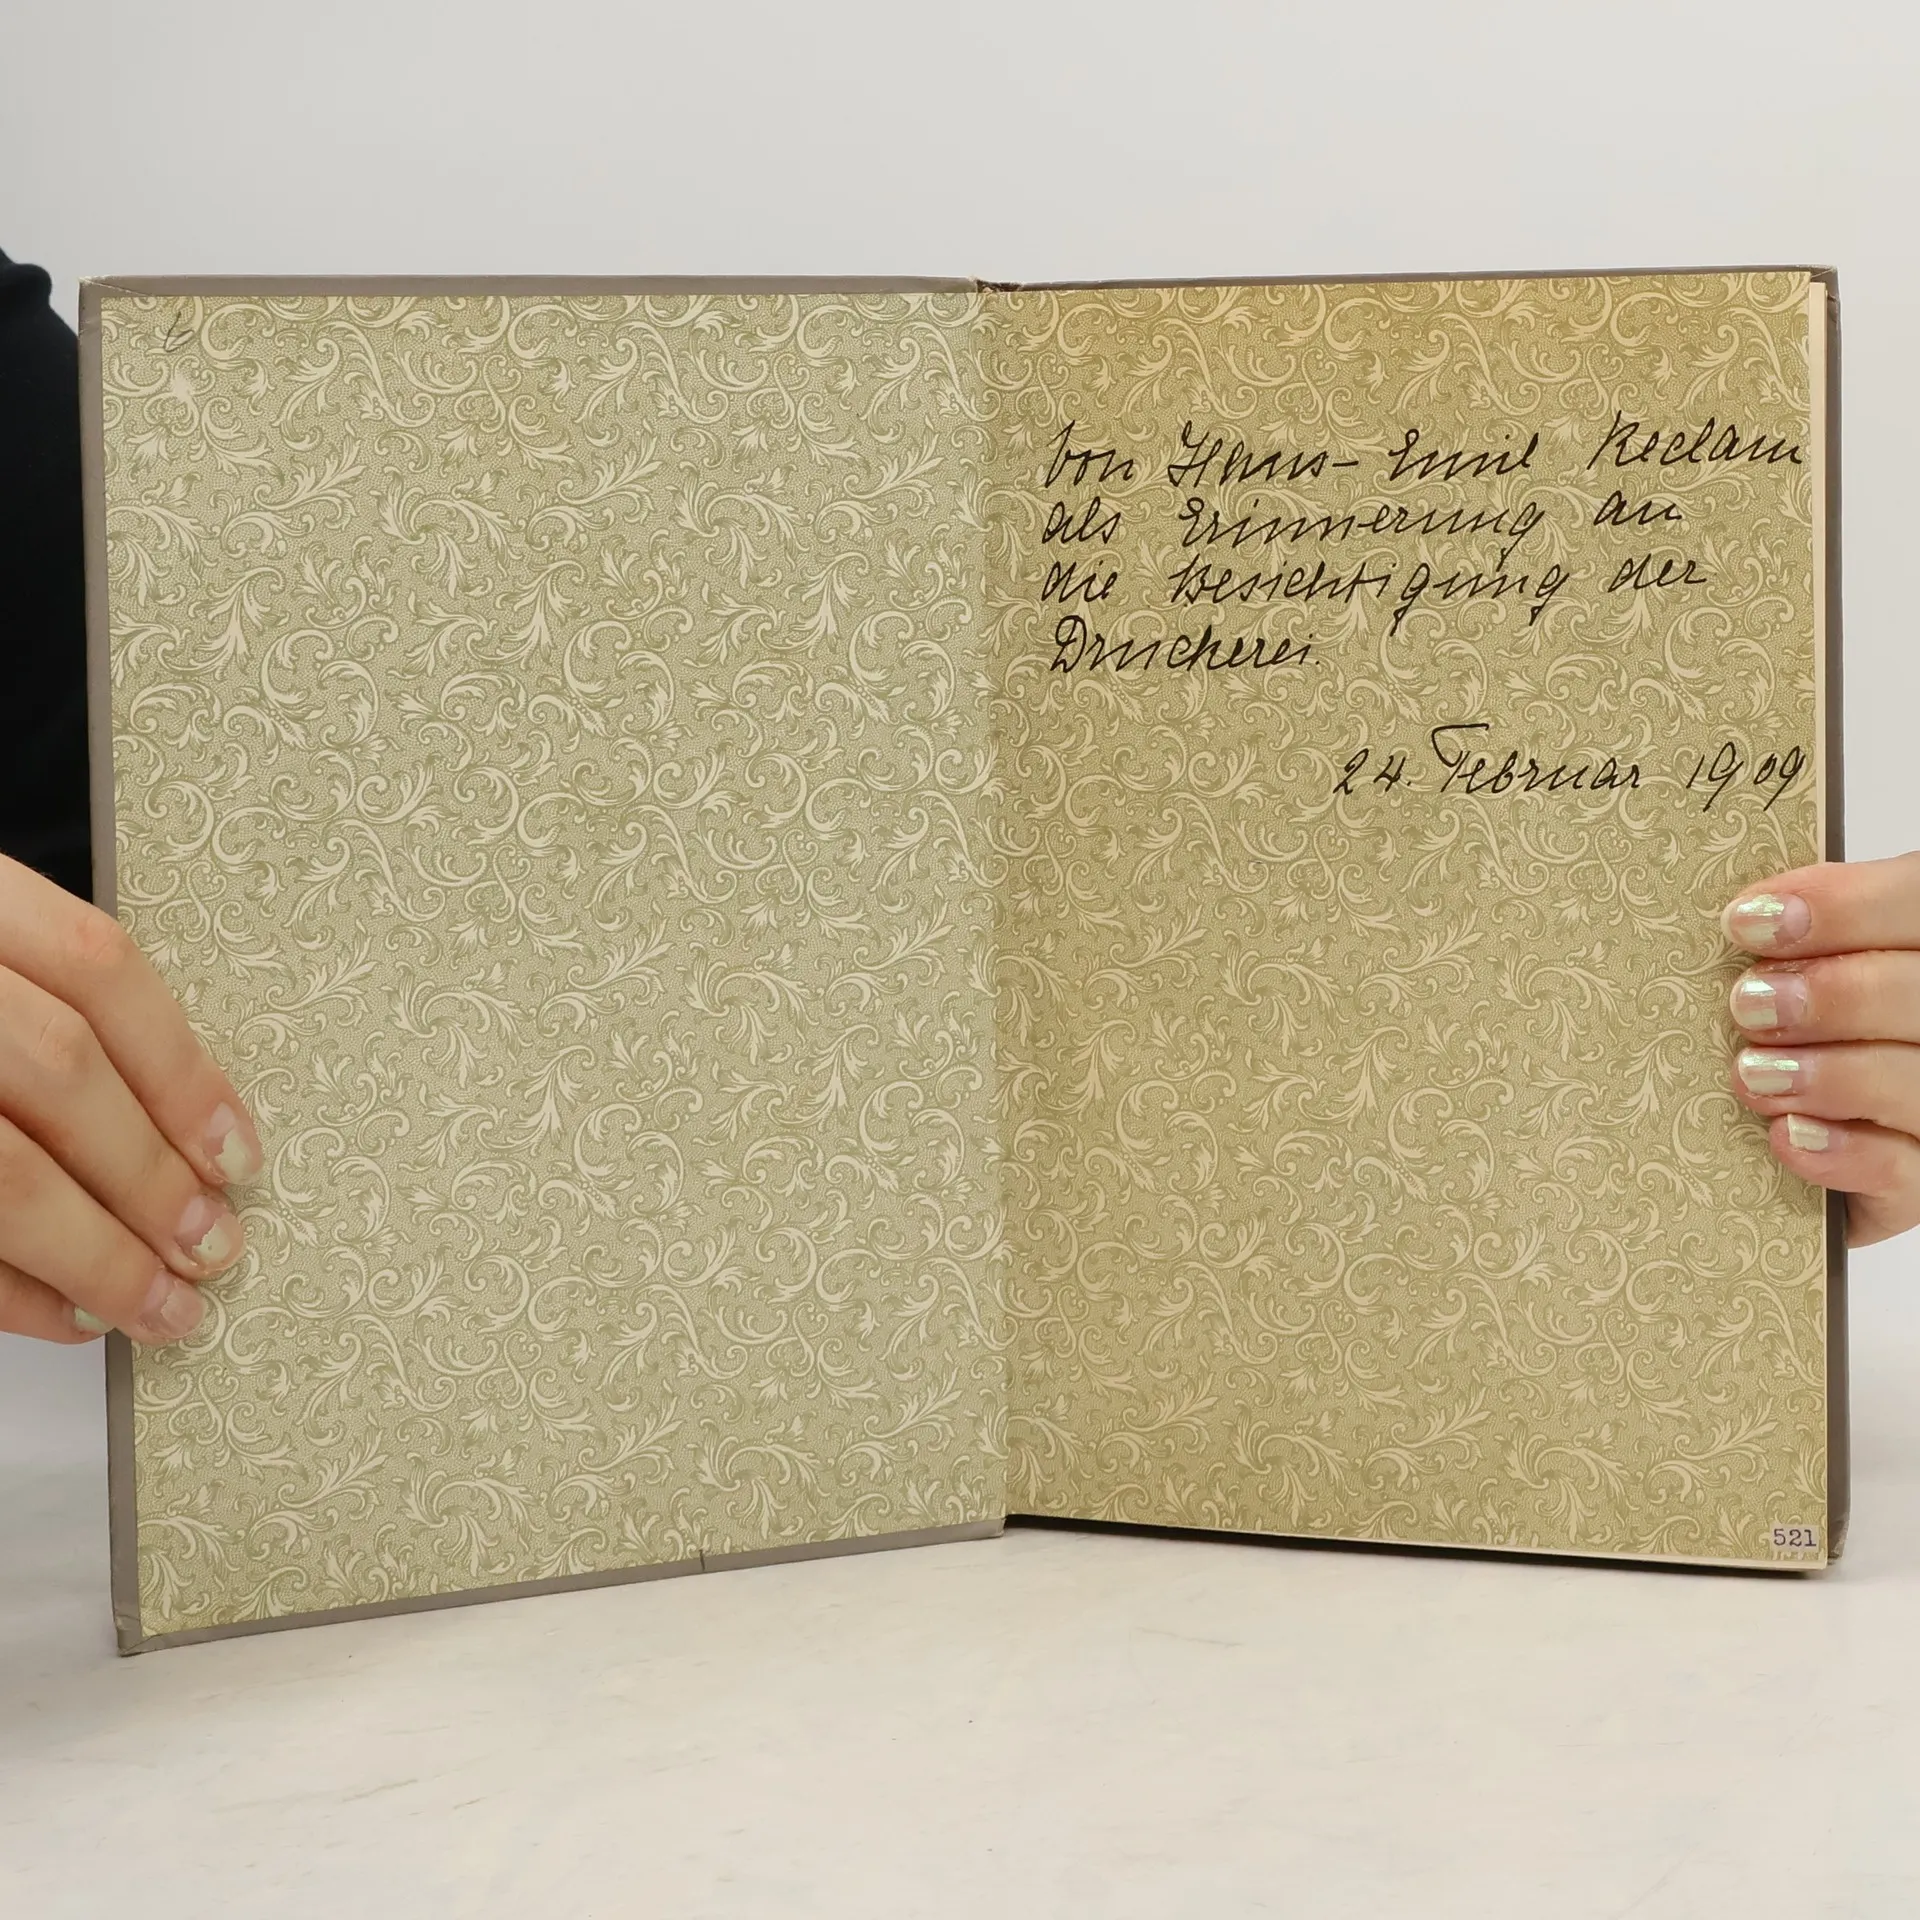 6
Von Hans-Emil Reclam
als Erinnerung an
die Besichtigung der
Druckerei.
24. Februar 1909
521